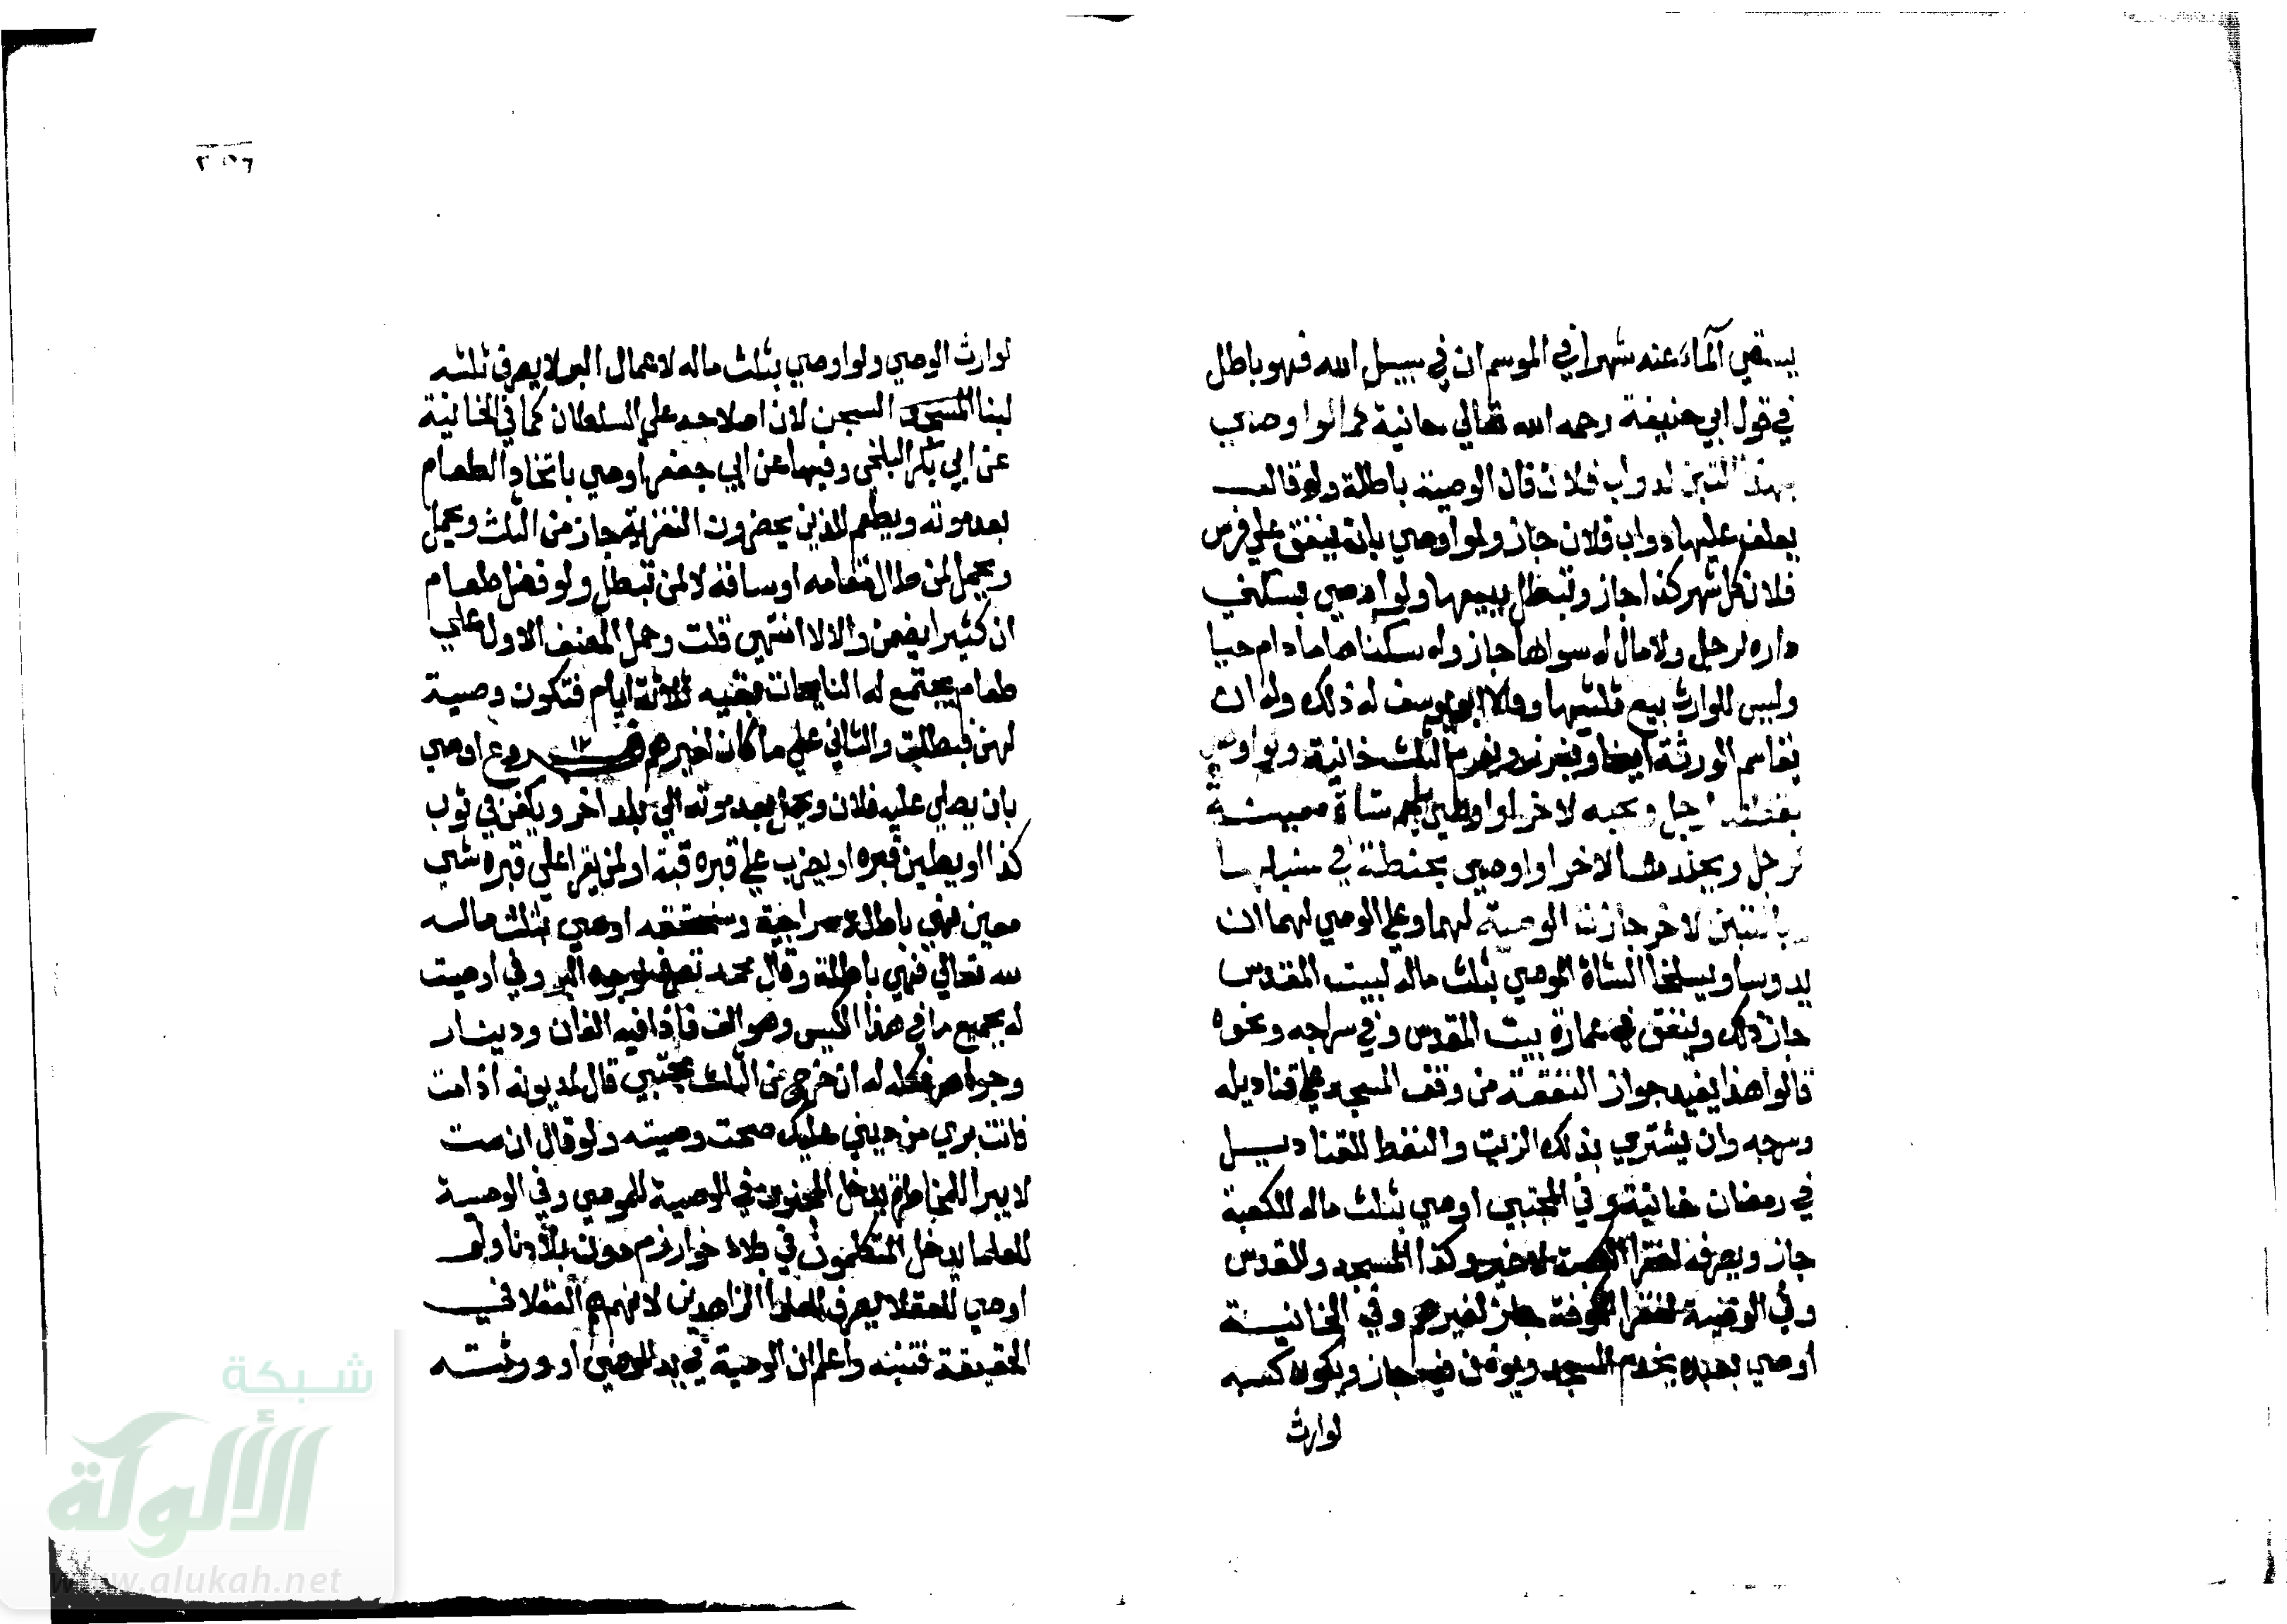 يستقي الماء عنه شهرا في الموسم ان في سبيل الله فهو باطل
في قول ابي حنيفة رحمه الله تعالي خانية كما لو اوصي
بهذا التبن لدواب فلان فان الوصية باطلة ولو قال
يعلف عليها دواب فلان جاز ولو اوصي بان ينفق علي فرس
فلان كل شهر كذا جاز وتبطل ببيعها ولو اوصي بسكني
داره لرجل ولا مال له سواها جاز وله سكناها ما دام حيا
وليس للوارث بيع ثلثيها وقال ابو يوسف له ذلك وله ان
يقاسم الورثة ايضا ويفرز الثلث خانية ولو اوصي
بقطنه لرجل وبحبه لاخر او اوصي بلحم شاة معينة
لرجل وبجلدها لاخر او اوصي بحنطة في سنبلها
بالتبن لاخر جازت الوصية لهما وعلي الوصي لهما ان
يدوسا ويسلخا الشاة اوصي بثلث ماله لبيت المقدس
جاز ذلك وينفق في عمارة بيت المقدس وفي سراجه ونحوه
قالوا هذا يفيد جواز النفقة من وقف المسجد علي قناديله
وسرجه وان يشتري بذلك الزيت والنفط للقناديل
في رمضان خانية وفي المجتبي اوصي بثلث ماله للكعبة
جاز ويصرف لفقرا الكعبة لا غير وكذا المسجد وللقدس
وفي الوصية لفقرا الكوفة جاز لغيرهم وفي الخانية
اوصي بعبده يخدم المسجد ويوذن فيه جاز ويكون كسبه
لوارث
٢٥٦
لوارث الوصي ولو اوصي بثلث ماله لاعمال البر لا يصرف ثلثه
لبنا السجن لان اصلاحه علي السلطان كما في الخانية
عن ابي بكر البلخي وفيها عن ابي جعفر اوصي باتخاذ الطعام
بعد موته ويطعم للذين يحضرون التعزية جاز من الثلث ويحل
ويحمل لمن طال مقامه او مسافته لا لمن تبطل ولو فضل طعام
ان كثيرا يضمن والا لا انتهي قلت وحمل المصنف الاول علي
طعام يجتمع له النايحات بقيد ثلاثة ايام فتكون وصية
لهن فبطلت والثاني علي ما كان لغيرهم فروع اوصي
بان يصلي عليه فلان ويحمل بعد موته الي بلد اخر ويكفن في ثوب
كذا او يطين قبره او يضرب علي قبره قبة او لمن يقرا علي قبره شي
معين فهي باطلة سراجية وسنحققه اوصي بثلث ماله
لله تعالي فهي باطلة وقال محمد تصرف لوجه البر وفي اوصيت
له بجميع ما في هذا الكيس وهو الف فاذا فيه الفان ودينار
وجواهر فكله له ان خرج من الثلث مجتبي قال لمديونه اذا مت
فانت بري من ديني عليك صحت وصيته ولو قال ان مت
لا يبرا للمخاطرة يدخل المجنون في الوصية للمرضي وفي الوصية
للعلما يدخل المتكلمون في بلاد خوارزم دون بلادنا ولو
اوصي للعقلا يصرف للعلما الزاهدين لانهم هم العقلا في
الحقيقة فتنبه واعلم ان الوصية في يد الموصي او ورثته
شبكة
الألوكة
www.alukah.net